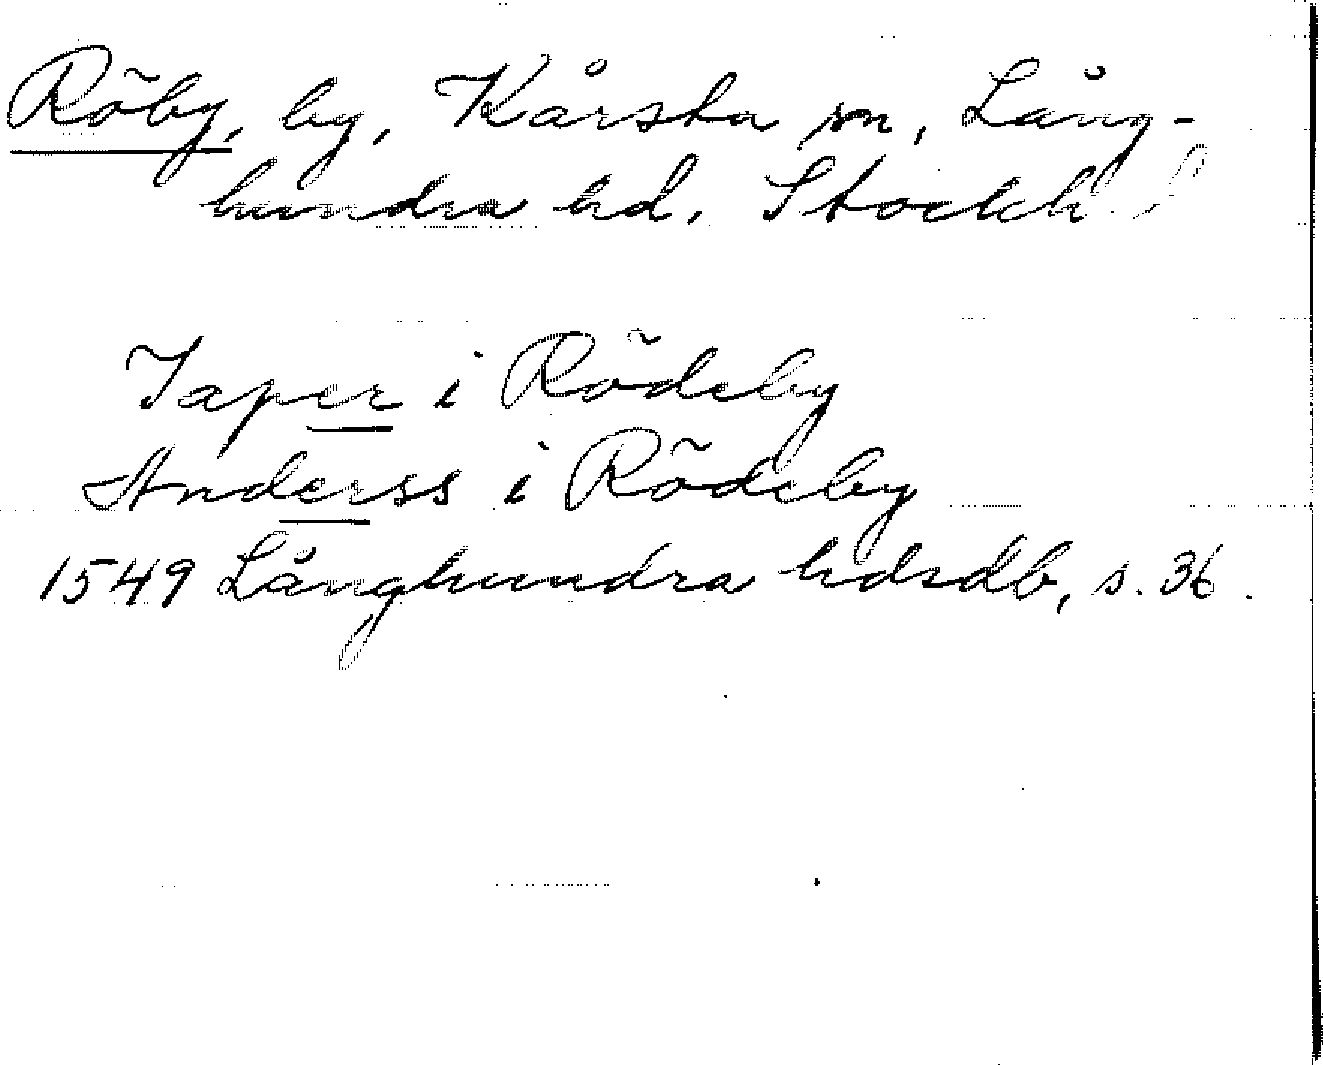 Röby, by, Kårsta sn, Lång-
hundra hd. Stockh. l
Japer i Rödeby
Anderss i Rödeby
1549 Långhundra hdsdb, s. 36.